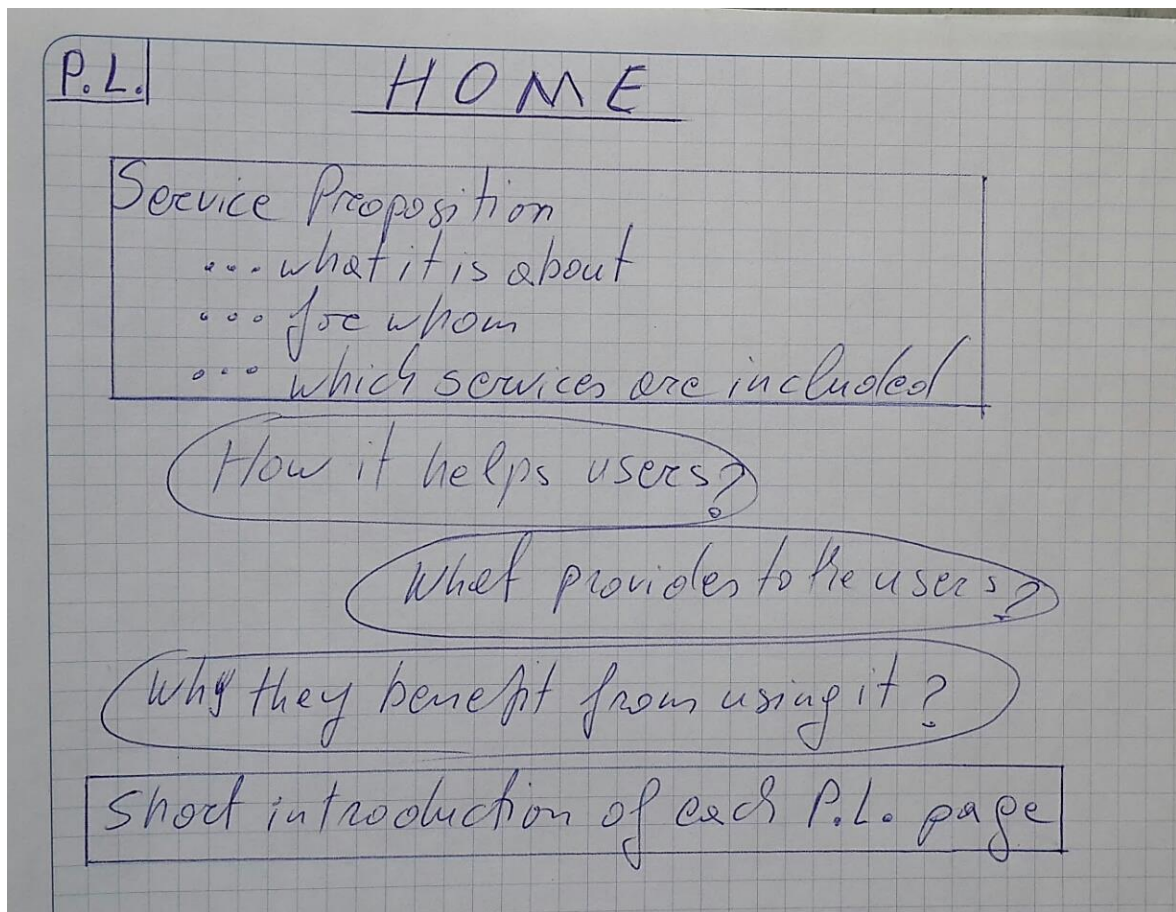 P.L.
HOME
Service Proposition
... what it is about
... for whom
... which services are included
How it helps users?
What provides to the users?
Why they benefit from using it?
Short introduction of each P.L. page